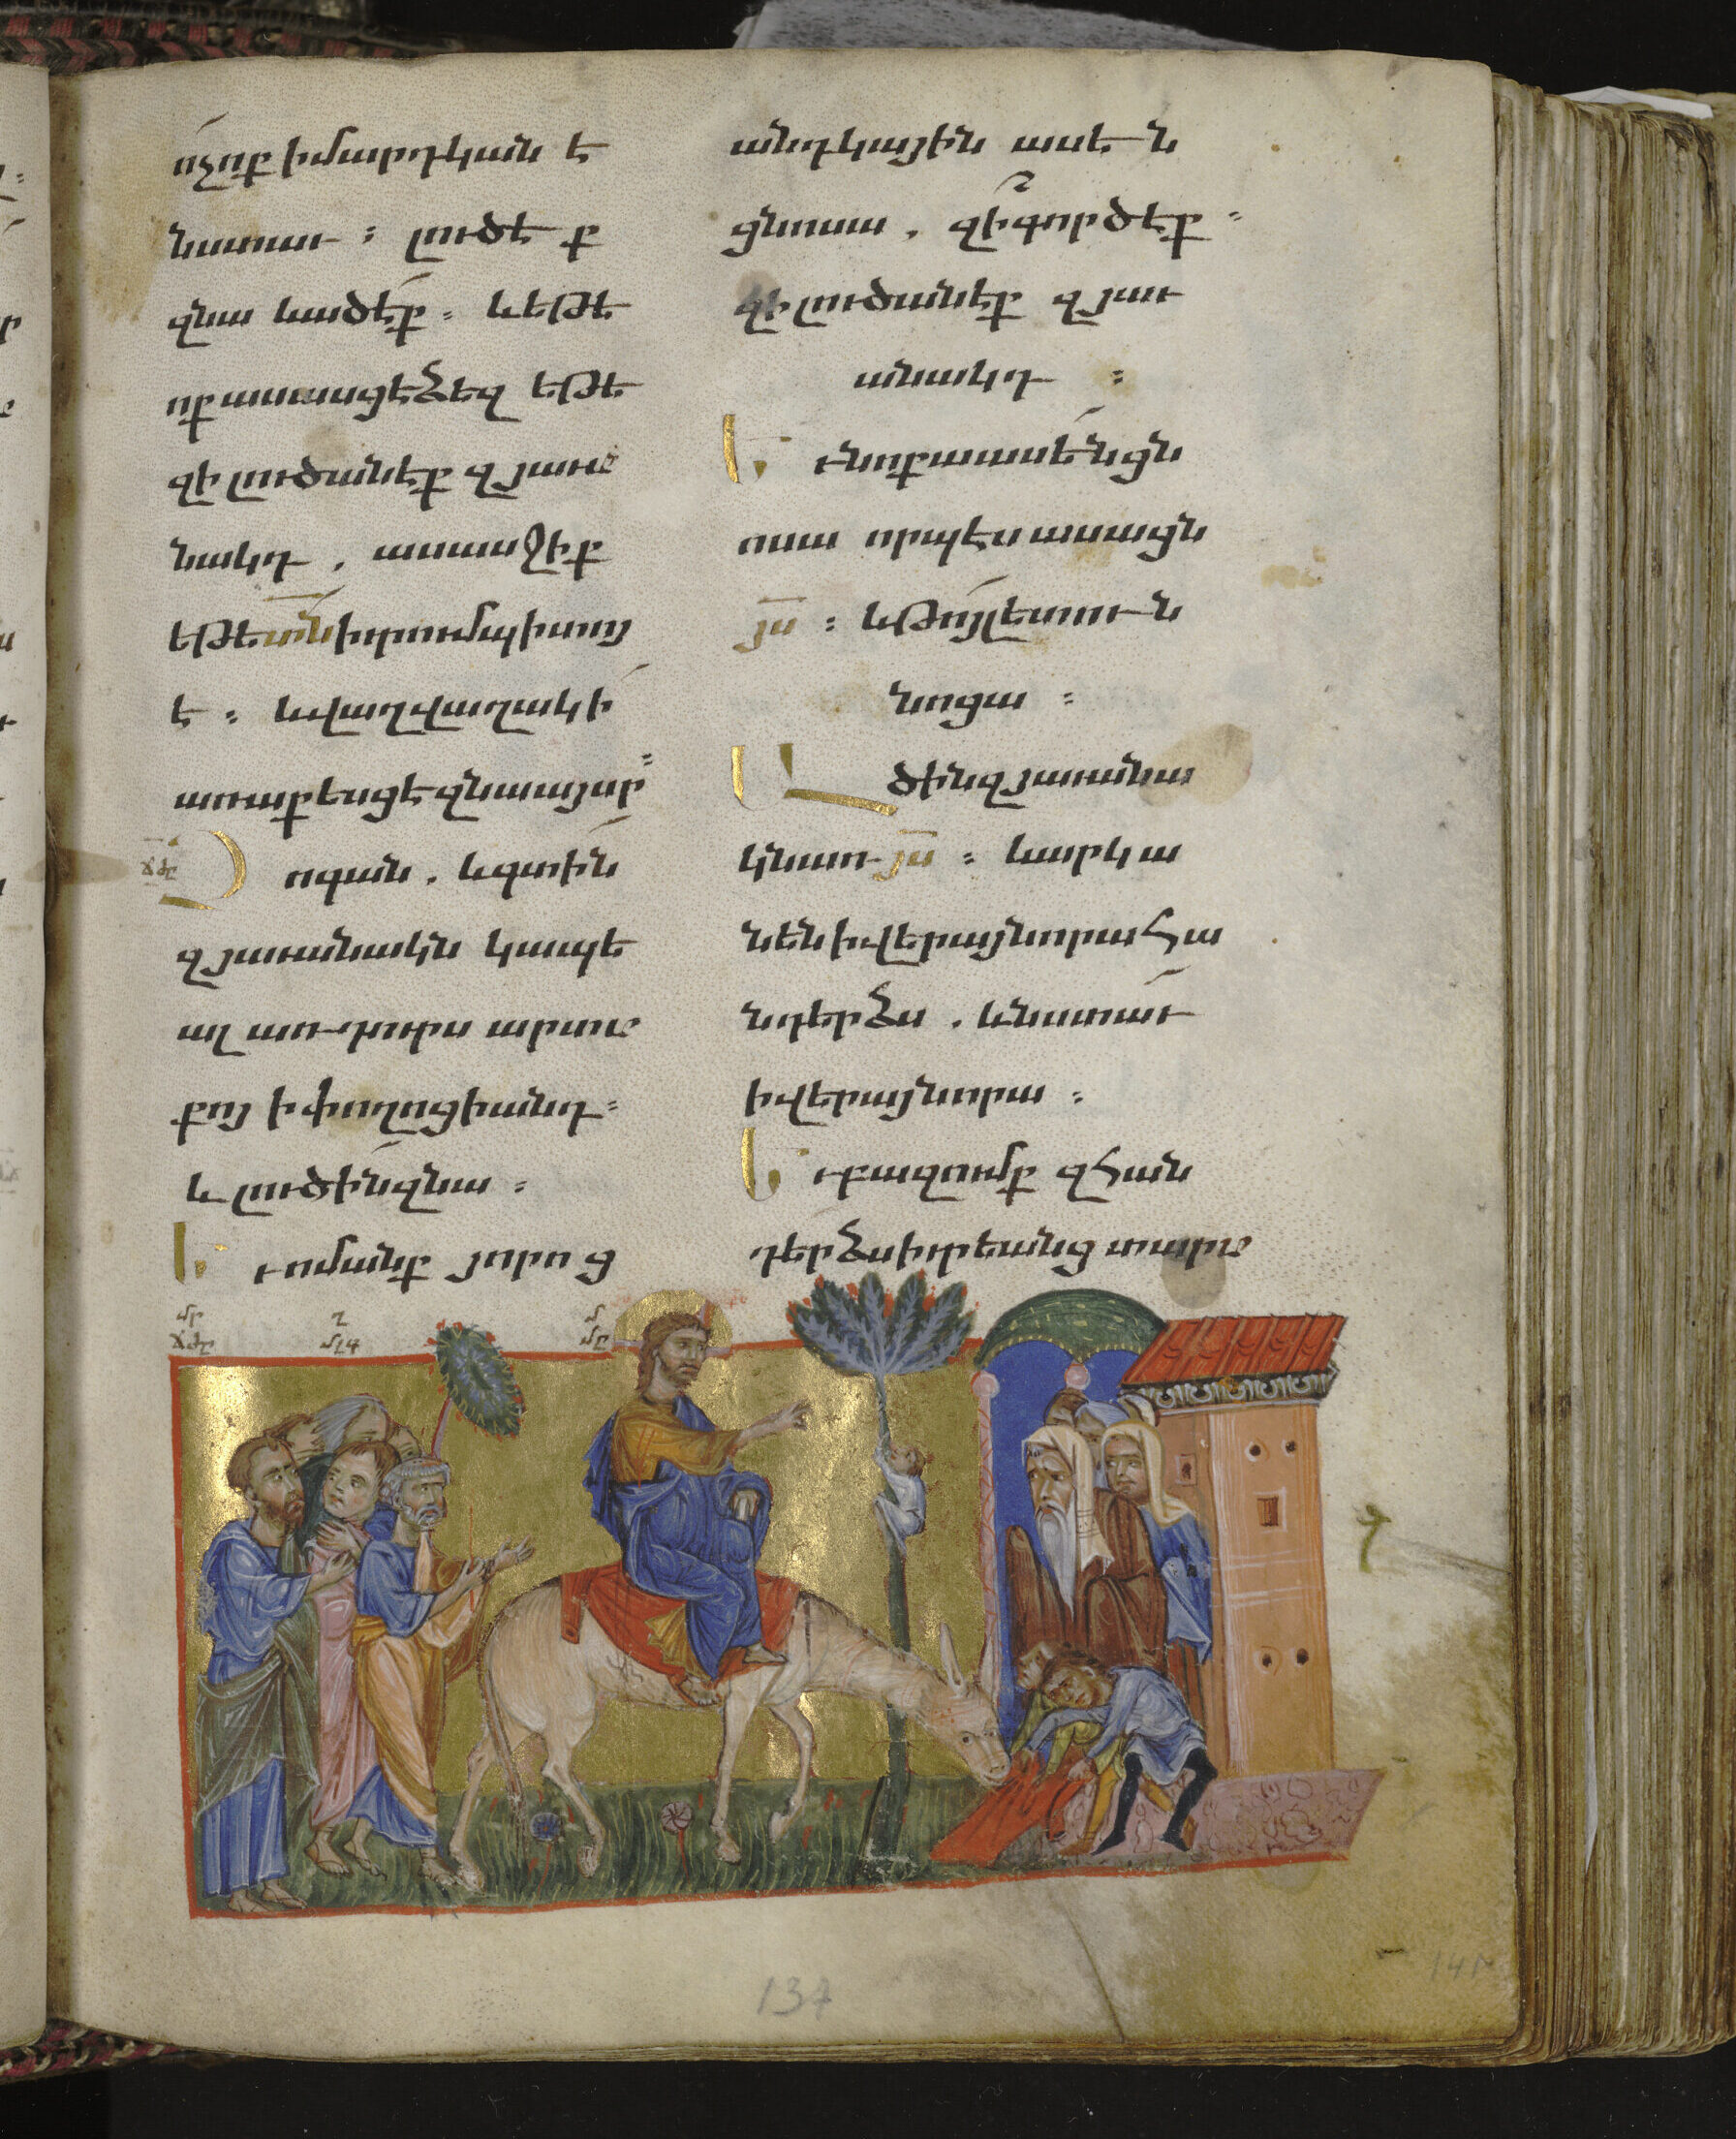 ոչոք ի մարդկանէ
նստաւ ։ լուծէք
զնա եւ ածէք ։ և եթէ
ոք ասասցէ ձեզ եթէ
զի լուծանէք զյաւա
նակդ . ասասջիք
եթէ տն իւրում պիտոյ
է ։ և վաղվաղակի
առաքեսցէ զնա այսր ։
ճժը
Չոգան . և գտին
զյաւանակն կապե
ալ առ դուրս արտա
քոյ ի փողոցի անդ ։
և լուծին զնա ։
Եւ ոմանք յորոց
անդ կային ասեն
ցնոսա . զի՞ գործէք ։
զի լուծանէք զյաւ
անակդ ։
Եւ նոքա ասեն ցն
ոսա որպէս ասաց ն
յս ։ և թոյլետուն
նոցա ։
Ածին զյաւանա
կն առ յս ։ և արկա
նեն ի վերայ նորա հա
նդերձս . և նստաւ
ի վերայ նորա ։
Եւ բազումք զհան
դերձս իւրեանց տարա
մր
ճժը
ղ
մլգ
մ
մը
137
141